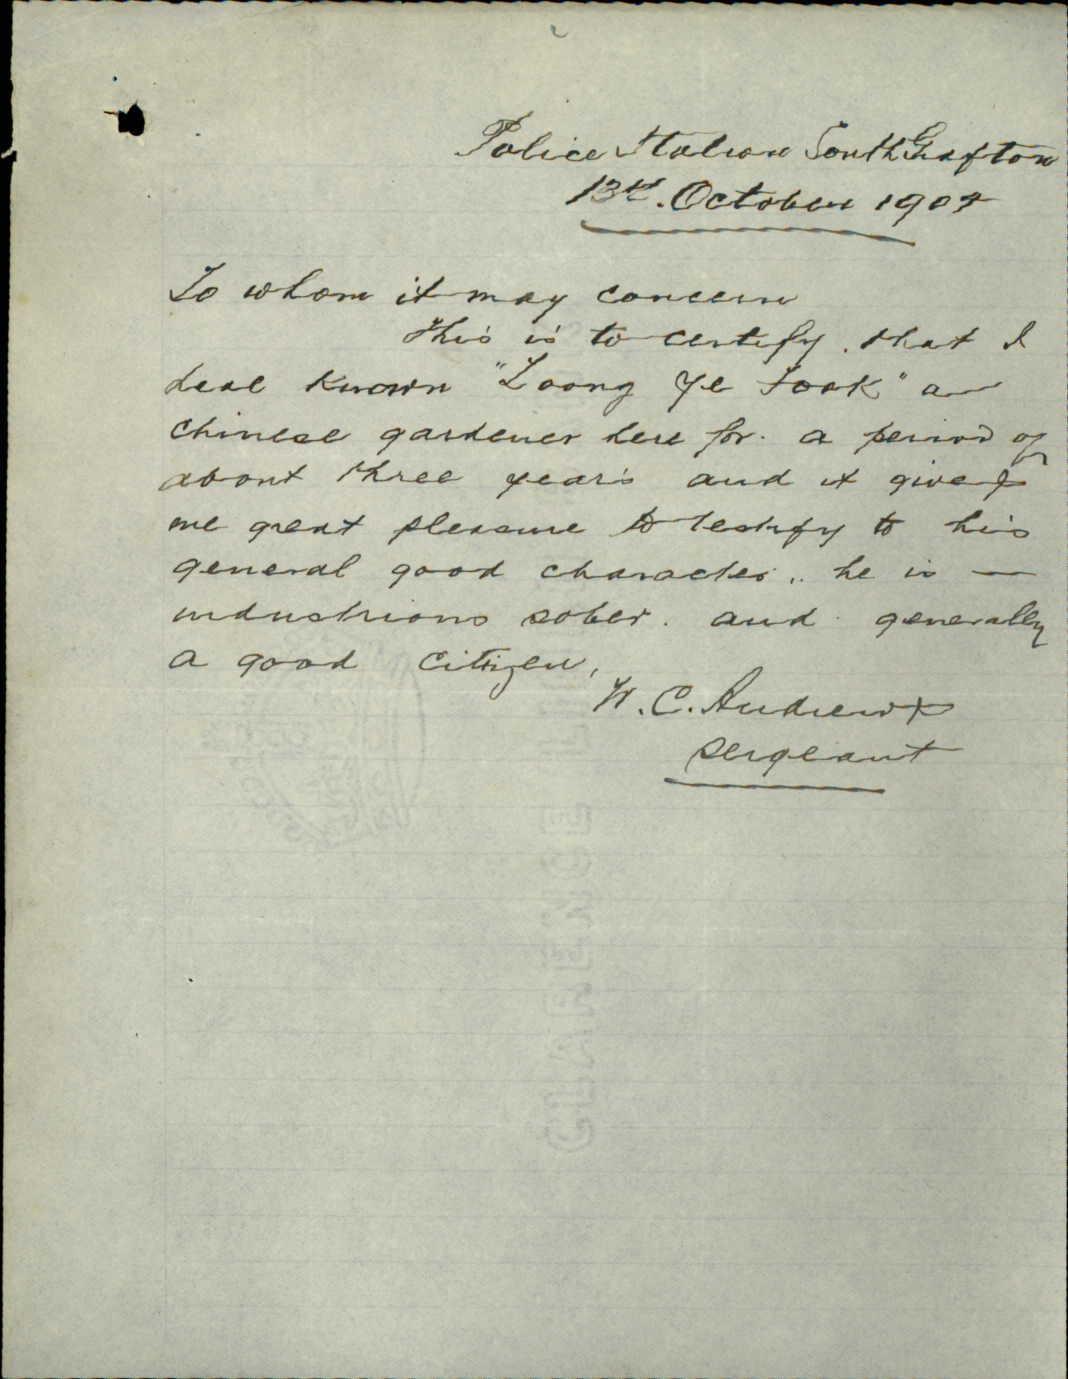 Police Station South Grafton
13th. October 1907
To whom it may concern
This is to certify. that I
have known "Loong Ye Fook" a
chinese gardener here for. a period of
about three year's and it gives
me great pleasure to testify to his
general good character.. he is —
industrious sober. and generally
a good citizen,
W. C. Andrews
Sergeant